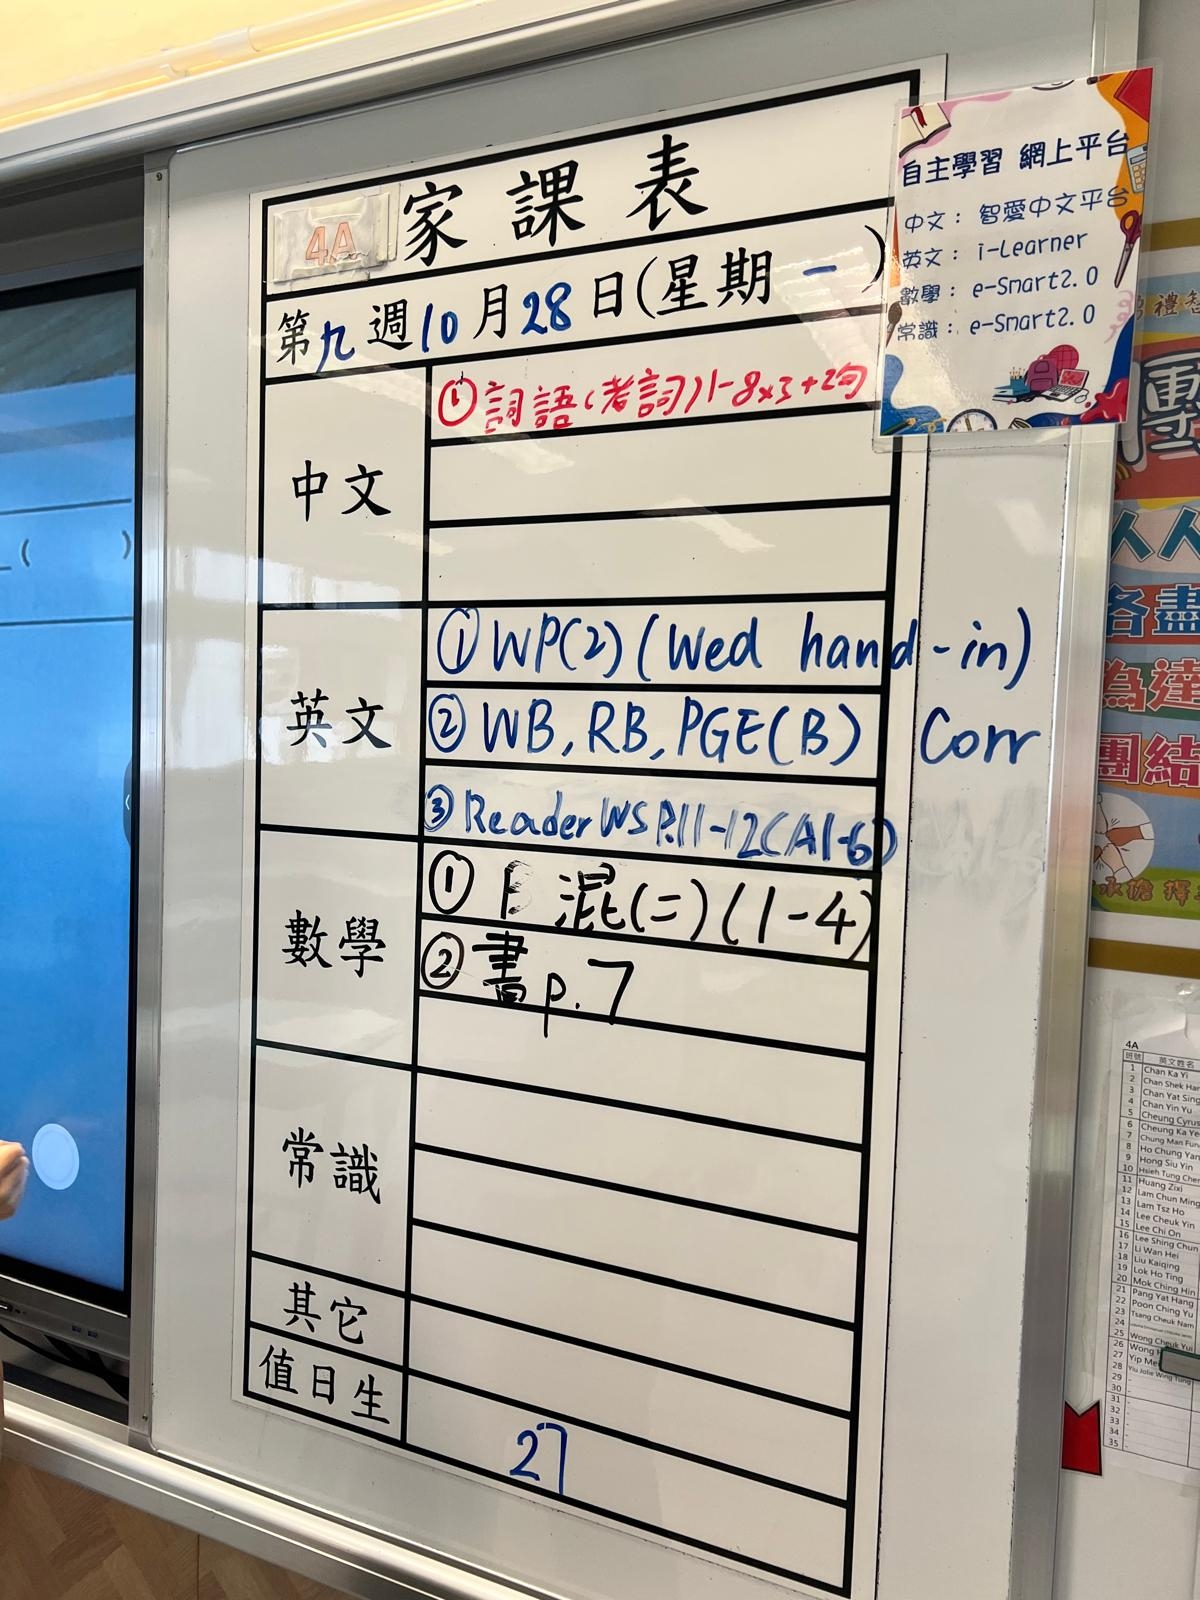 4A 家課表
第九週10月28日(星期一)
中文
① 詞語(考詞)1-8x3+2句
英文
① WP(2) (Wed hand-in)
② WB, RB, PGE(B) Corr
③ Reader WS P.11-12(A1-6)
數學
① 混(二)(1-4)
② 書p.7
常識
其它
值日生
27
自主學習 網上平台
中文: 智愛中文平台
英文: i-Learner
數學: e-Smart2.0
常識: e-Smart2.0
人人
各盡
為達
團結
4A
班號 英文姓名
1 Chan Ka Yi
2 Chan Shek Han
3 Chan Yat Sing
4 Chan Yin Yu
5 Cheung Cyrus
6 Cheung Ka Ye
7 Chung Man Fun
8 Ho Chung Yan
9 Hong Siu Yin
10 Hsieh Tung Cher
11 Huang Zixi
12 Lam Chun Ming
13 Lam Tsz Ho
14 Lee Cheuk Yin
15 Lee Chi On
16 Lee Shing Chun
17 Li Wan Hei
18 Liu Kaiqing
19 Lok Ho Ting
20 Mok Ching Hin
21 Pang Yat Hang
22 Poon Ching Yu
23 Tsang Cheuk Nam
24
25 Wong Cheuk Yui
26 Wong
27 Yip Me
28 Yiu Jolie Wing Tung
29 -
30 -
31 -
32 -
33 -
34 -
35 -